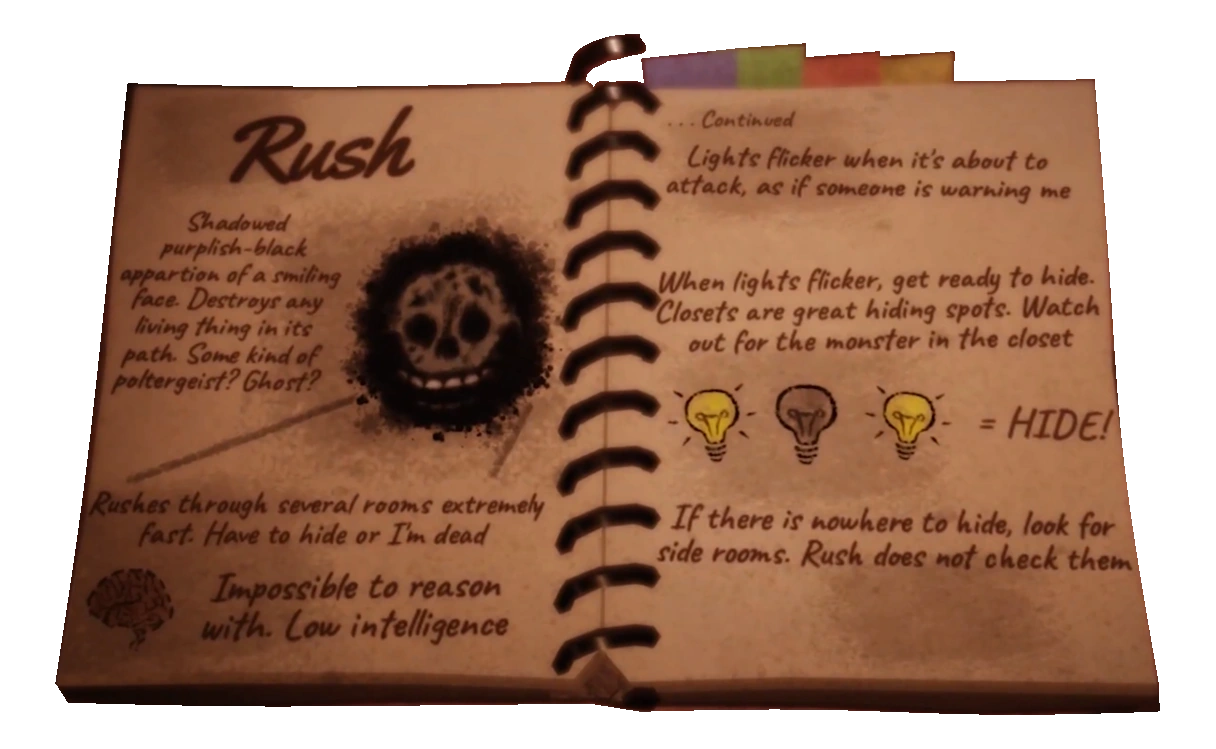 Rush
Shadowed
purplish-black
appartion of a smiling
face. Destroys any
living thing in its
path. Some kind of
poltergeist? Ghost?
Rushes through several rooms extremely
fast. Have to hide or I'm dead
Impossible to reason
with. Low intelligence
. . . Continued
Lights flicker when it's about to
attack, as if someone is warning me
When lights flicker, get ready to hide.
Closets are great hiding spots. Watch
out for the monster in the closet
= HIDE!
If there is nowhere to hide, look for
side rooms. Rush does not check them